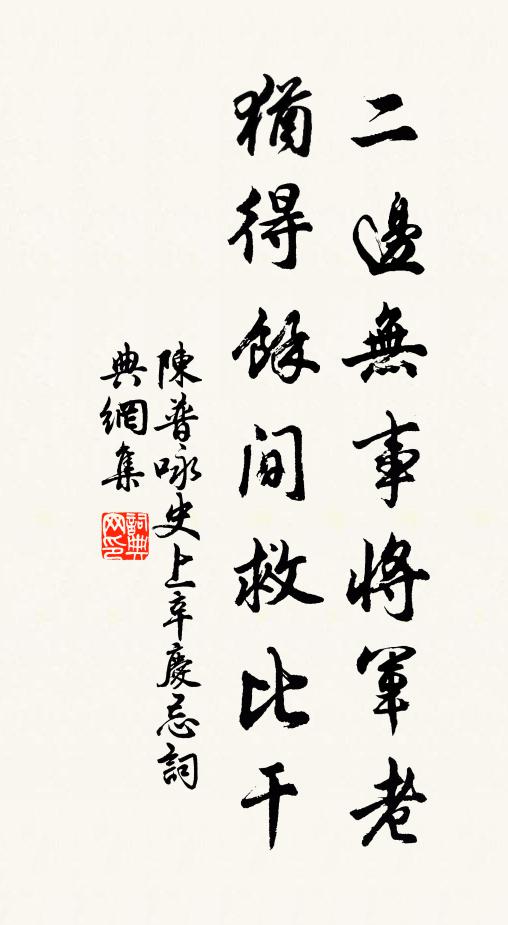 二邊無事將軍老
猶得餘間救比干
陳普咏史上辛慶忌詞
典網集
詞典網印